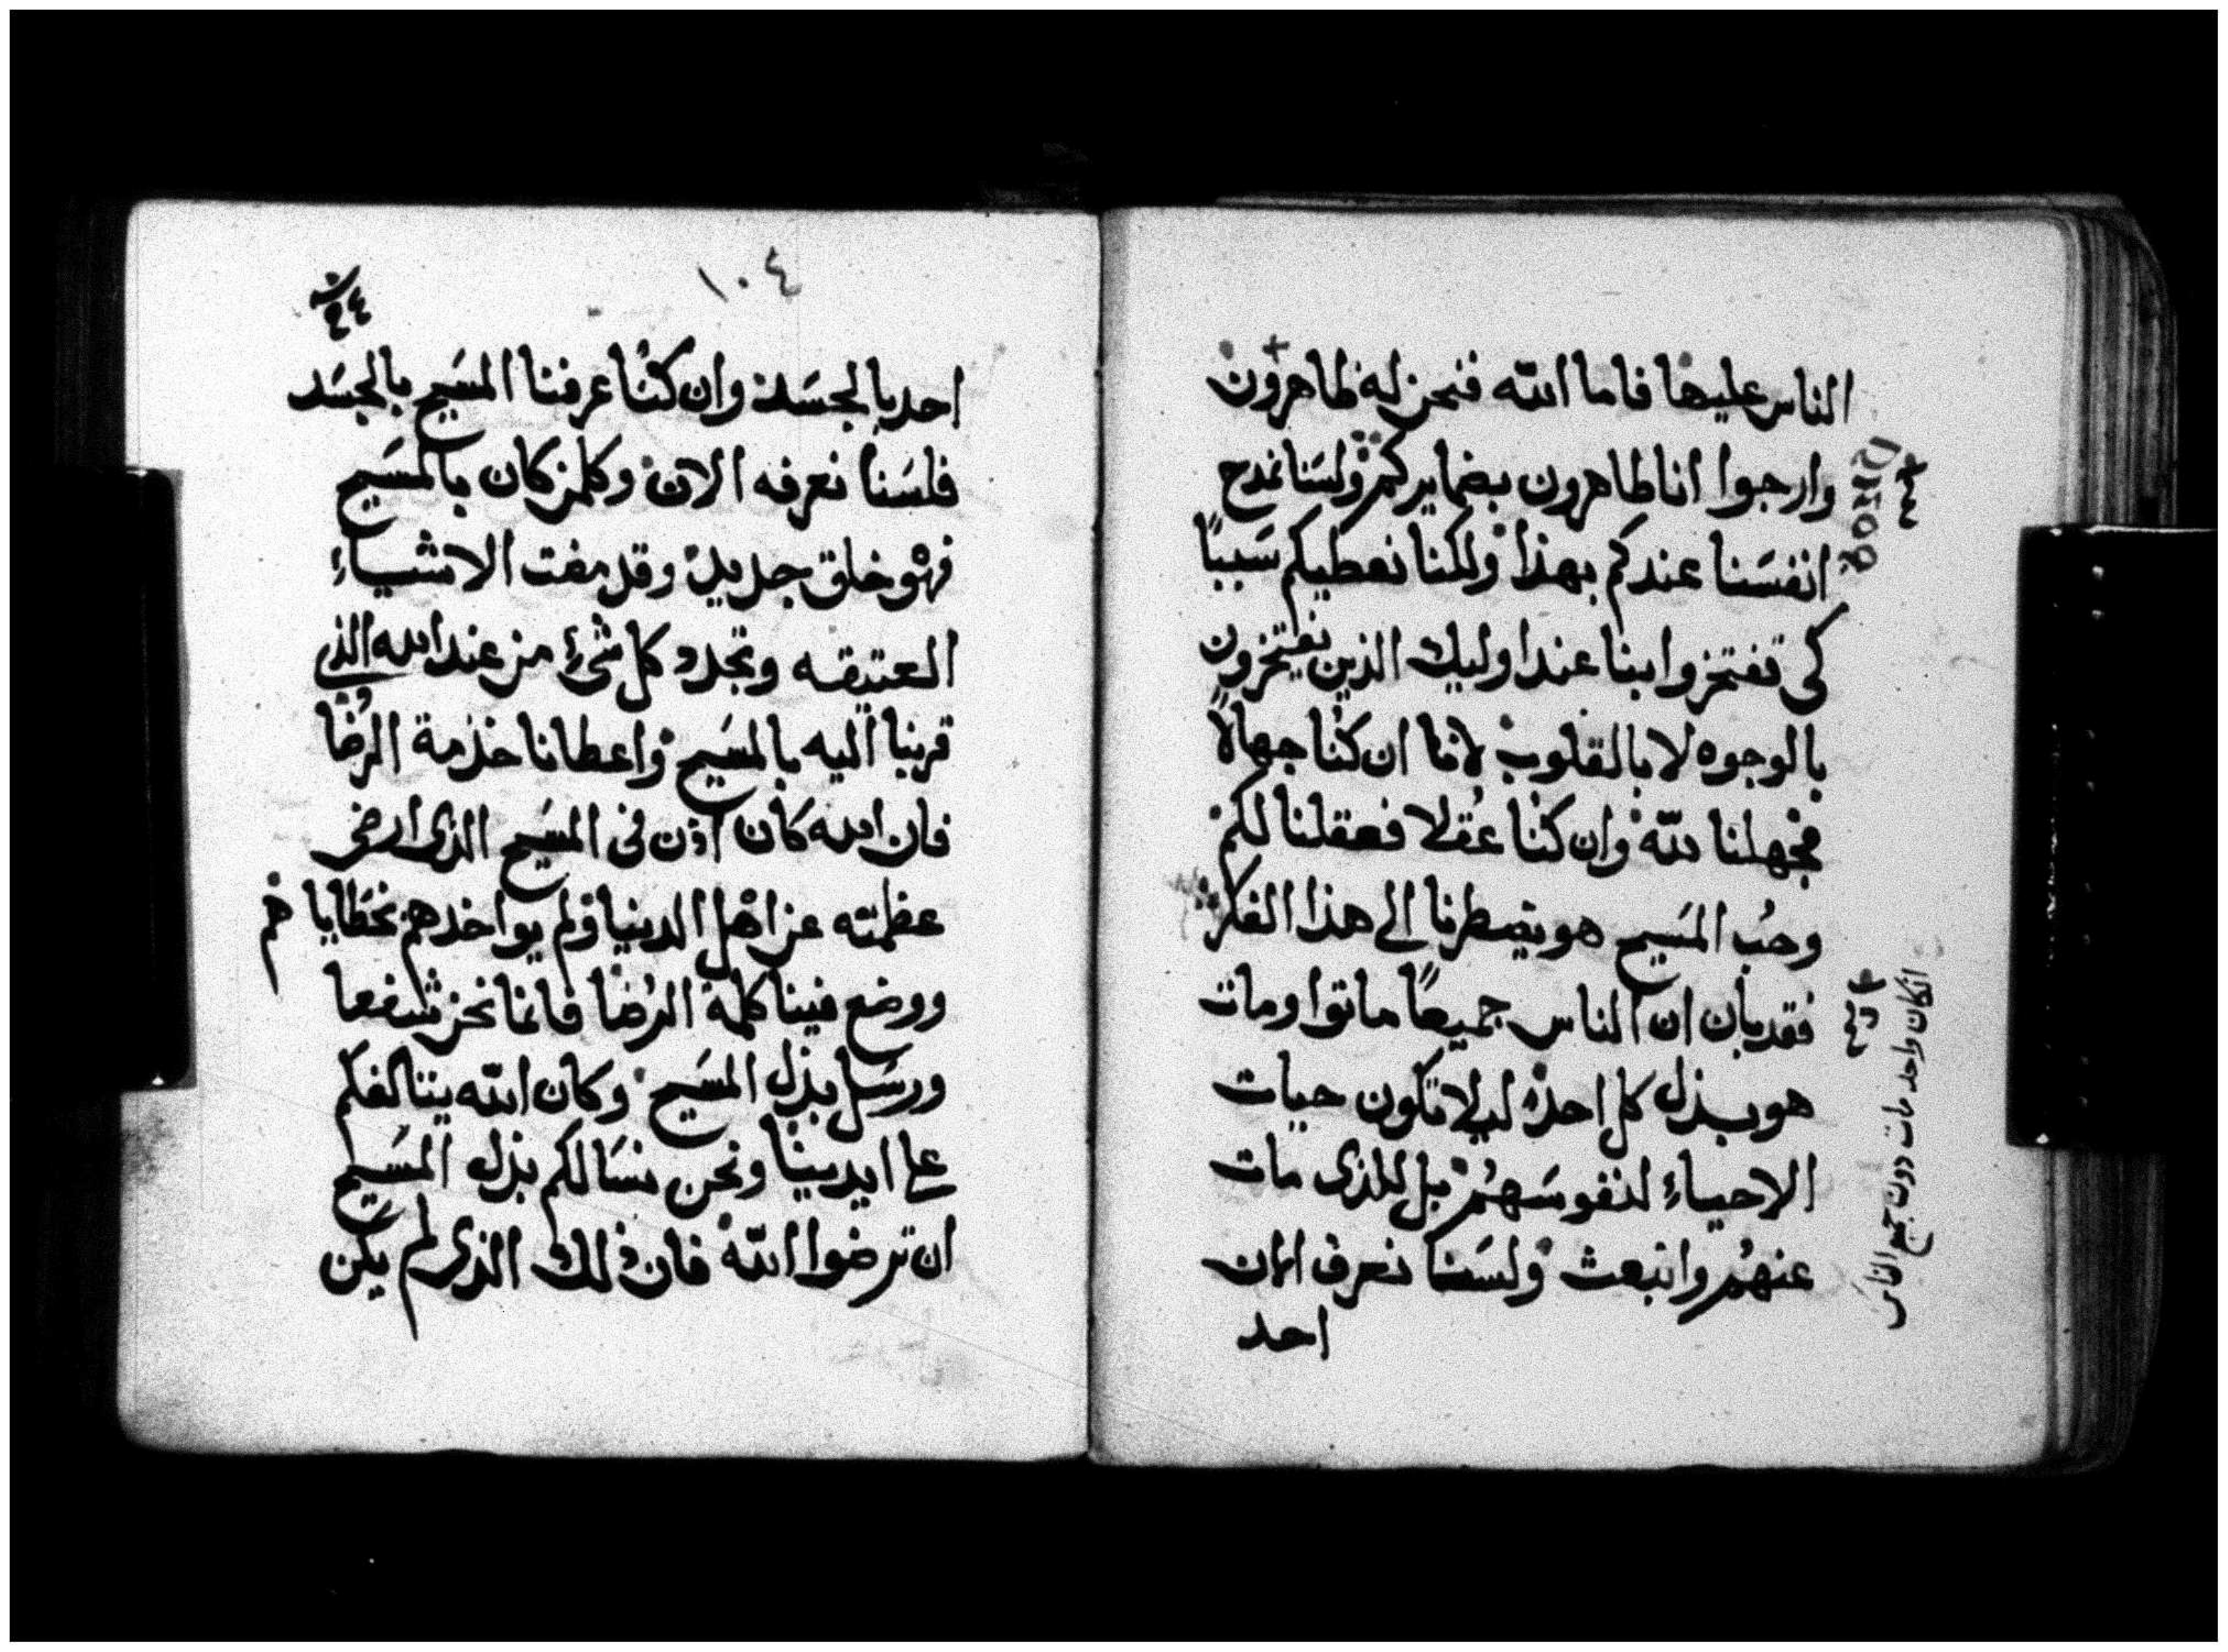 الناس عليها فاما الله فنحن له ظاهرون
وارجوا انا ظاهرون بضمايركم ولسنا نمدح
انفسنا عندكم بهذا ولكنا نعطيكم سببًا
كى تفتخروا بنا عند اوليك الذين يفتخرون
بالوجوه لا بالقلوب لاننا ان كنا جهالاً
فجهلنا لله وان كنا عقلا فعقلنا لكم
وحُب المسيح هو يضطرنا الى هذا الفكر
فقد بان ان الناس جميعًا ماتوا ومات
هو بدل كل احد ليلا تكون حيات
الاحياء لنفوسهم بل للذى مات
عنهُم وانبعث ولسنا نعرف الان
احد
انكان واحد مات دون جميع الناس
١٠٤
احد بالجسد وان كنا عرفنا المسيح بالجسد
فلسنا نعرفه الان وكلمن كان بالمسيح
فهو خلق جديد وقد مضت الاشياء
العتيقه وتجدد كل شئ من عند الله الذي
قربنا اليه بالمسيح واعطانا خدمة الرضا
فان الله كان اذن فى المسيح الذى ارضى
عظمته عن اهل الدنيا ولم يواخدهم بخطاياهم
ووضع فينا كلمة الرضا فانما نحن شفعا
ورسل بدل المسيح وكان الله
على ايدينا ونحن نسالكم بدل المسيح
ان ترضوا الله فان ذلك الذى لم يكن